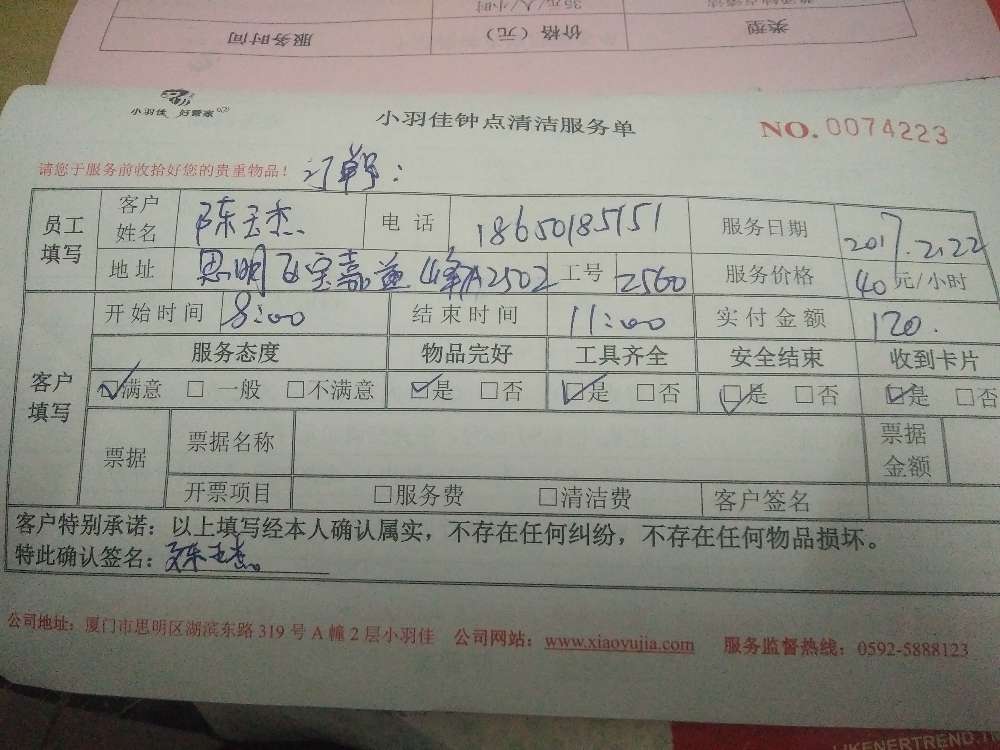 服务时间
价格（元）
类型
35元/人/小时
小羽佳 好管家
小羽佳钟点清洁服务单
NO. 0074223
请您于服务前收拾好您的贵重物品！ 订单号：
员工填写 客户姓名 陈玉杰 电话 18650185151 服务日期 2017.2.22
地址 思明区宝嘉誉峰A2502 工号 2560 服务价格 40元/小时
客户填写 开始时间 8:00 结束时间 11:00 实付金额 120.
服务态度 物品完好 工具齐全 安全结束 收到卡片
☑满意 □一般 □不满意 ☑是 □否 ☑是 □否 ☑是 □否 ☑是 □否
票据 票据名称 票据金额
开票项目 □服务费 □清洁费 客户签名
客户特别承诺：以上填写经本人确认属实，不存在任何纠纷，不存在任何物品损坏。
特此确认签名：陈玉杰
公司地址：厦门市思明区湖滨东路319号A幢2层小羽佳 公司网站：www.xiaoyujia.com 服务监督热线：0592-5888123
KENERTREND.T